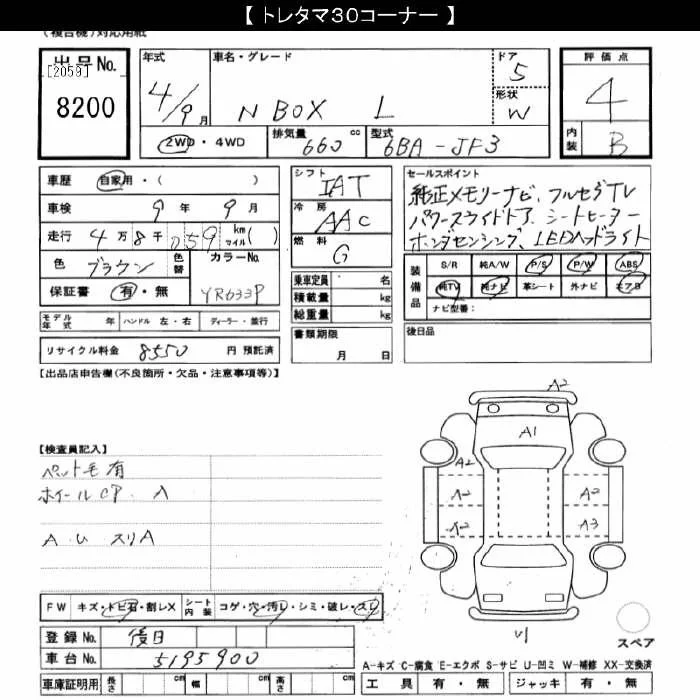 【 トレタマ30コーナー 】
(複合機)対応用紙
出品No.
[2059]
8200
年式 車名・グレード ドア 評価点
4/9月 N BOX L 5 4
形状 W
2WD・4WD 排気量 660 cc 型式 6BA-JF3 内装 B
車歴 自家用・( )
車検 9年 9月
走行 4万8千059 km マイル( )
色 ブラウン 色替 カラーNo.
保証書 有・無 YR633P
モデル年式 年 ハンドル 左・右 ディーラー・並行
リサイクル料金 8550 円 預託済
シフト IAT
冷房 AAC
燃料 G
乗車定員 名
積載量 kg
総重量 kg
書類期限
月 日
セールスポイント
純正メモリーナビ、フルセグTV
パワースライドドア、シートヒーター
ホンダセンシング、LEDヘッドライト
装備品 S/R 純A/W P/S P/W ABS
純TV 純ナビ 革シート 外ナビ エアB
ナビ型番:
後日品
【出品店申告欄(不良箇所・欠品・注意事項等)】
【検査員記入】
ペット毛有
ホイールCP.入
A.U スリA
A2
A1
A2
A2 A2
A2 A3
FW キズ・トビ石・割レX シート内装 コゲ・穴・汚レ・シミ・破レ・スレ
登録No. 後日
車台No. 5195900
車庫証明用 長さ cm 幅 cm 高さ cm
スペア
A-キズ C-腐食 E-エクボ S-サビ U-凹ミ W-補修 XX-交換済
工具 有・無 ジャッキ 有・無